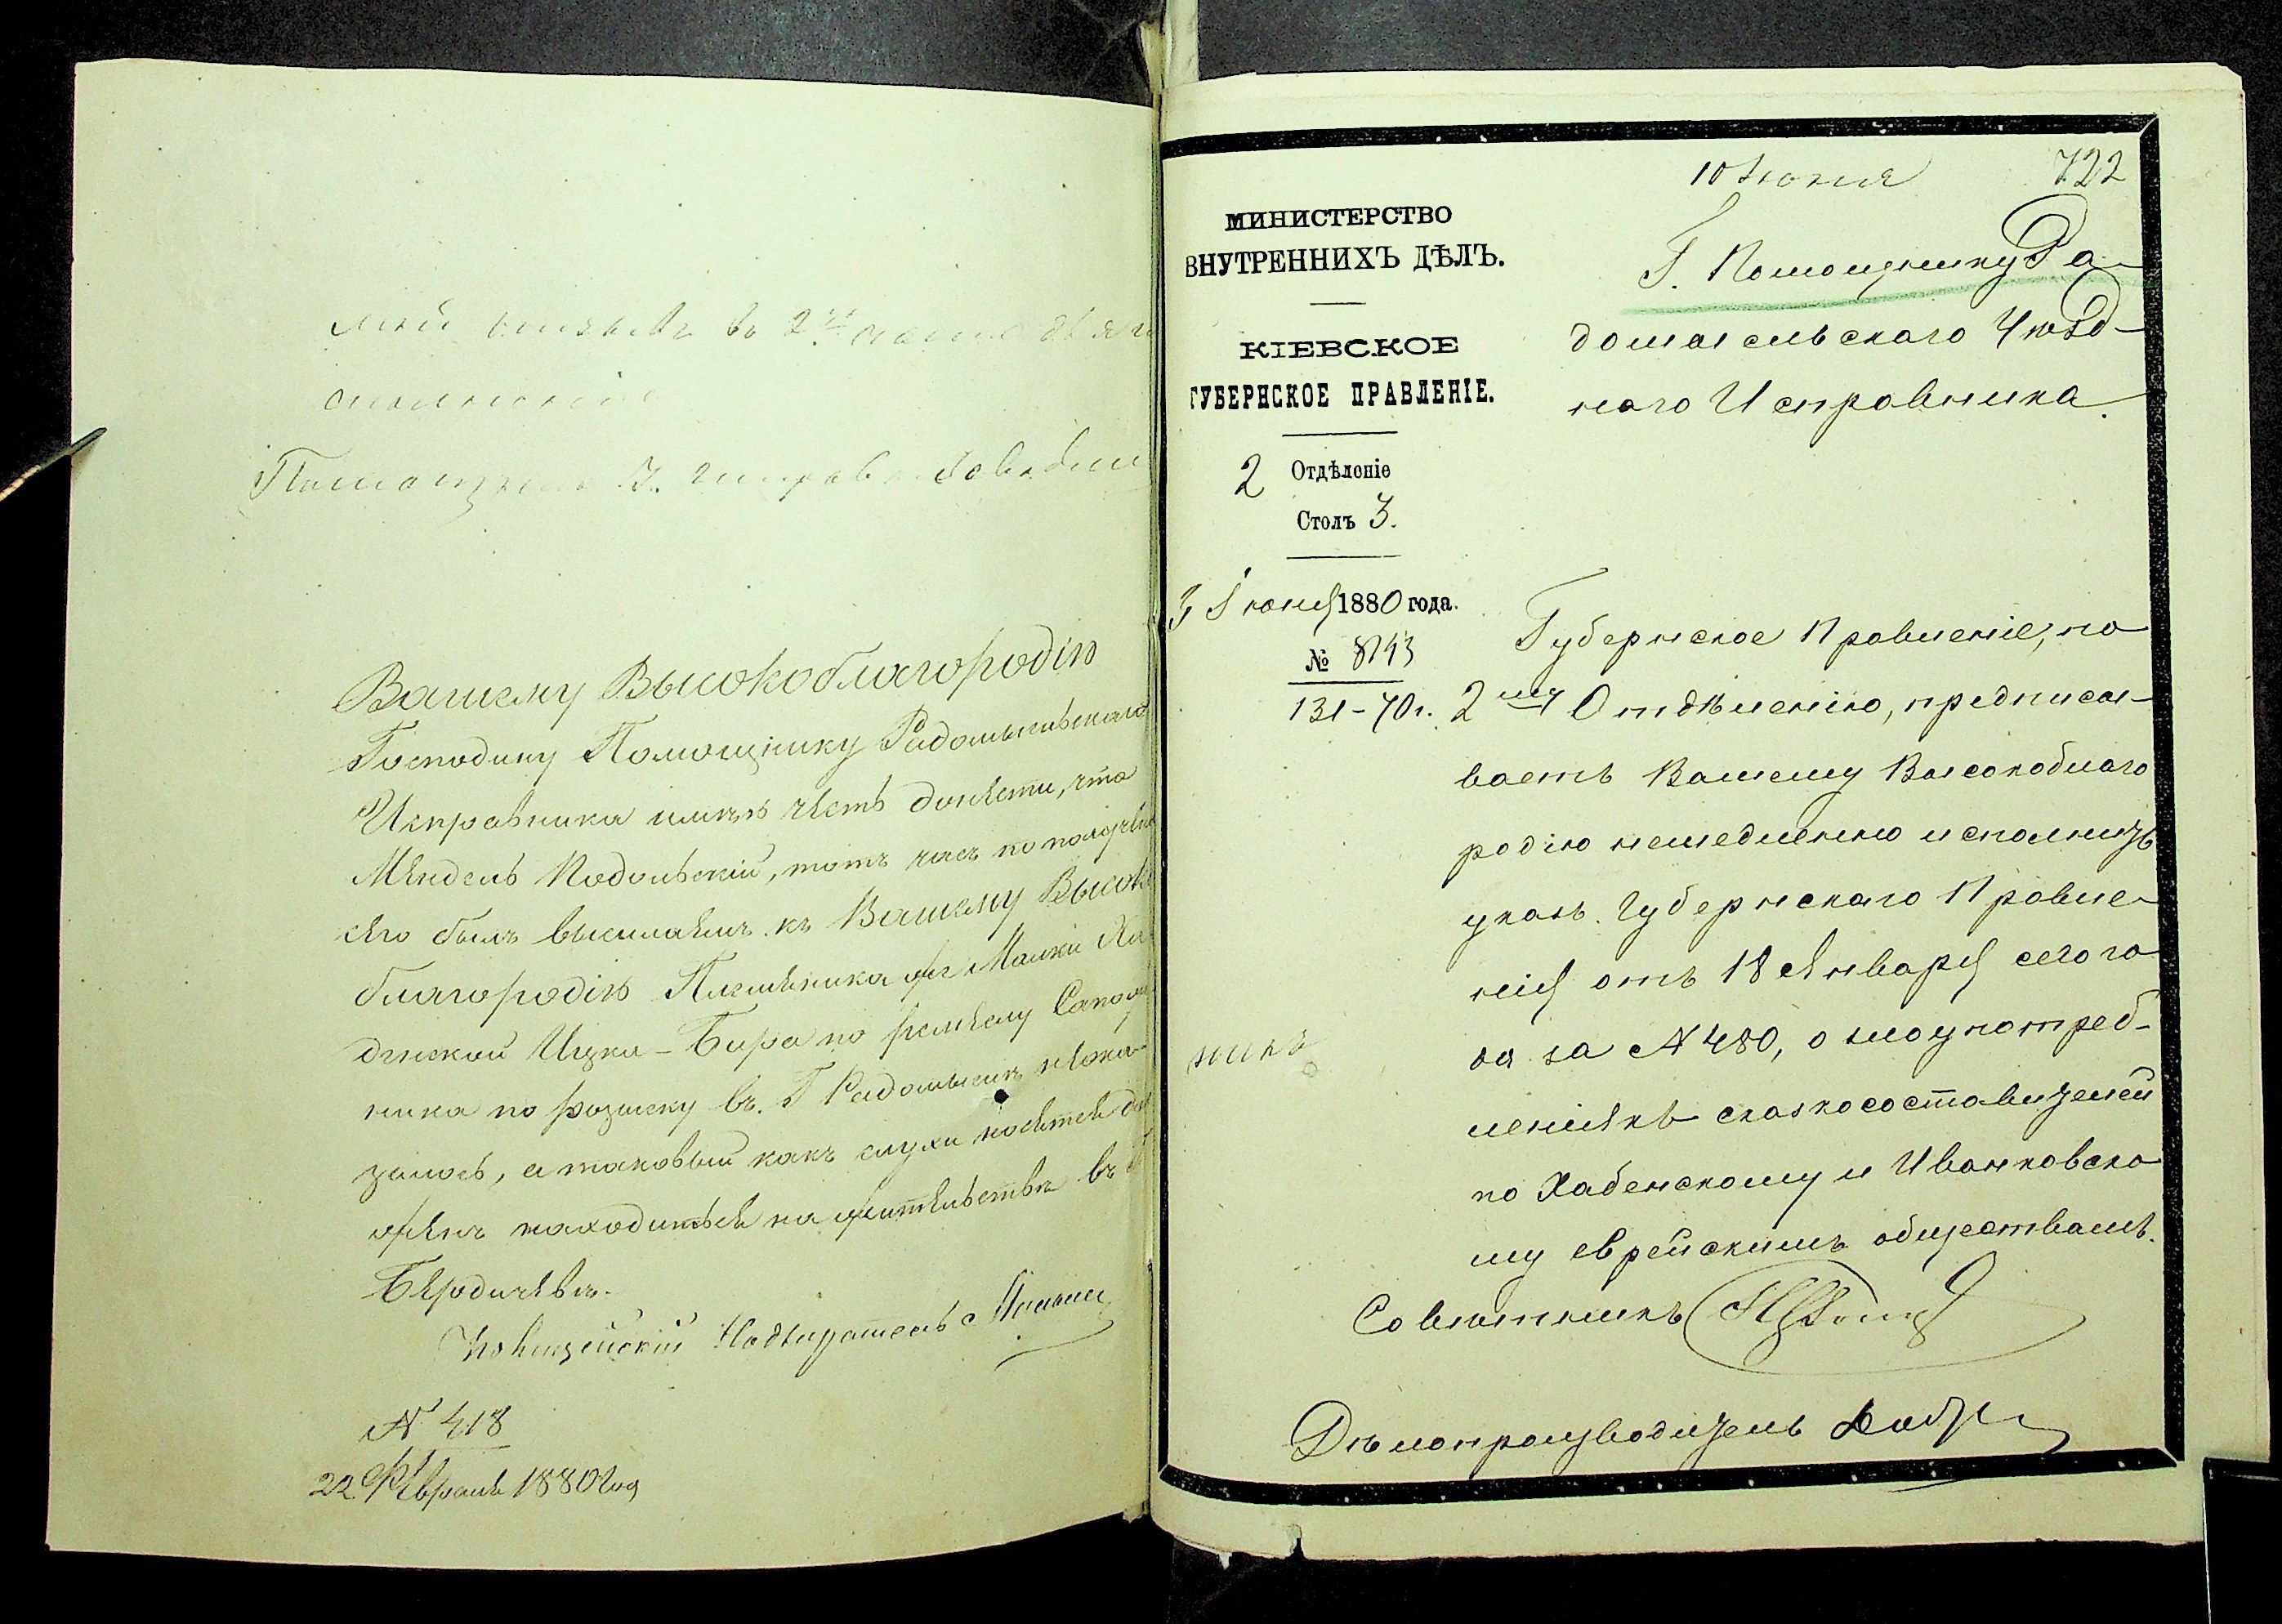 въ 2й
Помощникъ
Вашему Высокоблагородію
Господину Помощнику Радомысльскаго
Исправника имѣю честь донести, что
Мендель Подольскій, тотъ часъ по получе
сего былъ высылаемъ къ Вашему Высоко
благородію Племеника же Малки
Ицки-Бера по ремеслу Сапож
ника по розыску въ Г Радомыслѣ не ока
залось, а таковый какъ слухи носятся
находиться на жительствѣ въ
Бердичевѣ.
Полицейскій Надзиратель
№ 418
22 Февраля 1880 года
10 Іюня 722
МИНИСТЕРСТВО
ВНУТРЕННИХЪ ДѢЛЪ.
КІЕВСКОЕ
ГУБЕРНСКОЕ ПРАВЛЕНІЕ.
2 Отдѣленіе
Столъ 3.
3 Іюня 1880 года.
№ 8143
131-70 г.
Г. Помощнику Ра-
домысльскаго Уѣзд-
наго Исправника.
Губернское Правленіе, по
2му Отдѣленію, предписы-
ваетъ Вашему Высокоблаго
родію немедленно исполнить
указъ Губернскаго Правле-
нія отъ 18 Января сего го
да за № 480, о злоупотреб-
леніяхъ сказкосоставителей
по Хабенскому и Иванковско
му еврейскимъ обществамъ.
Совѣтникъ
Дѣлопроизводитель